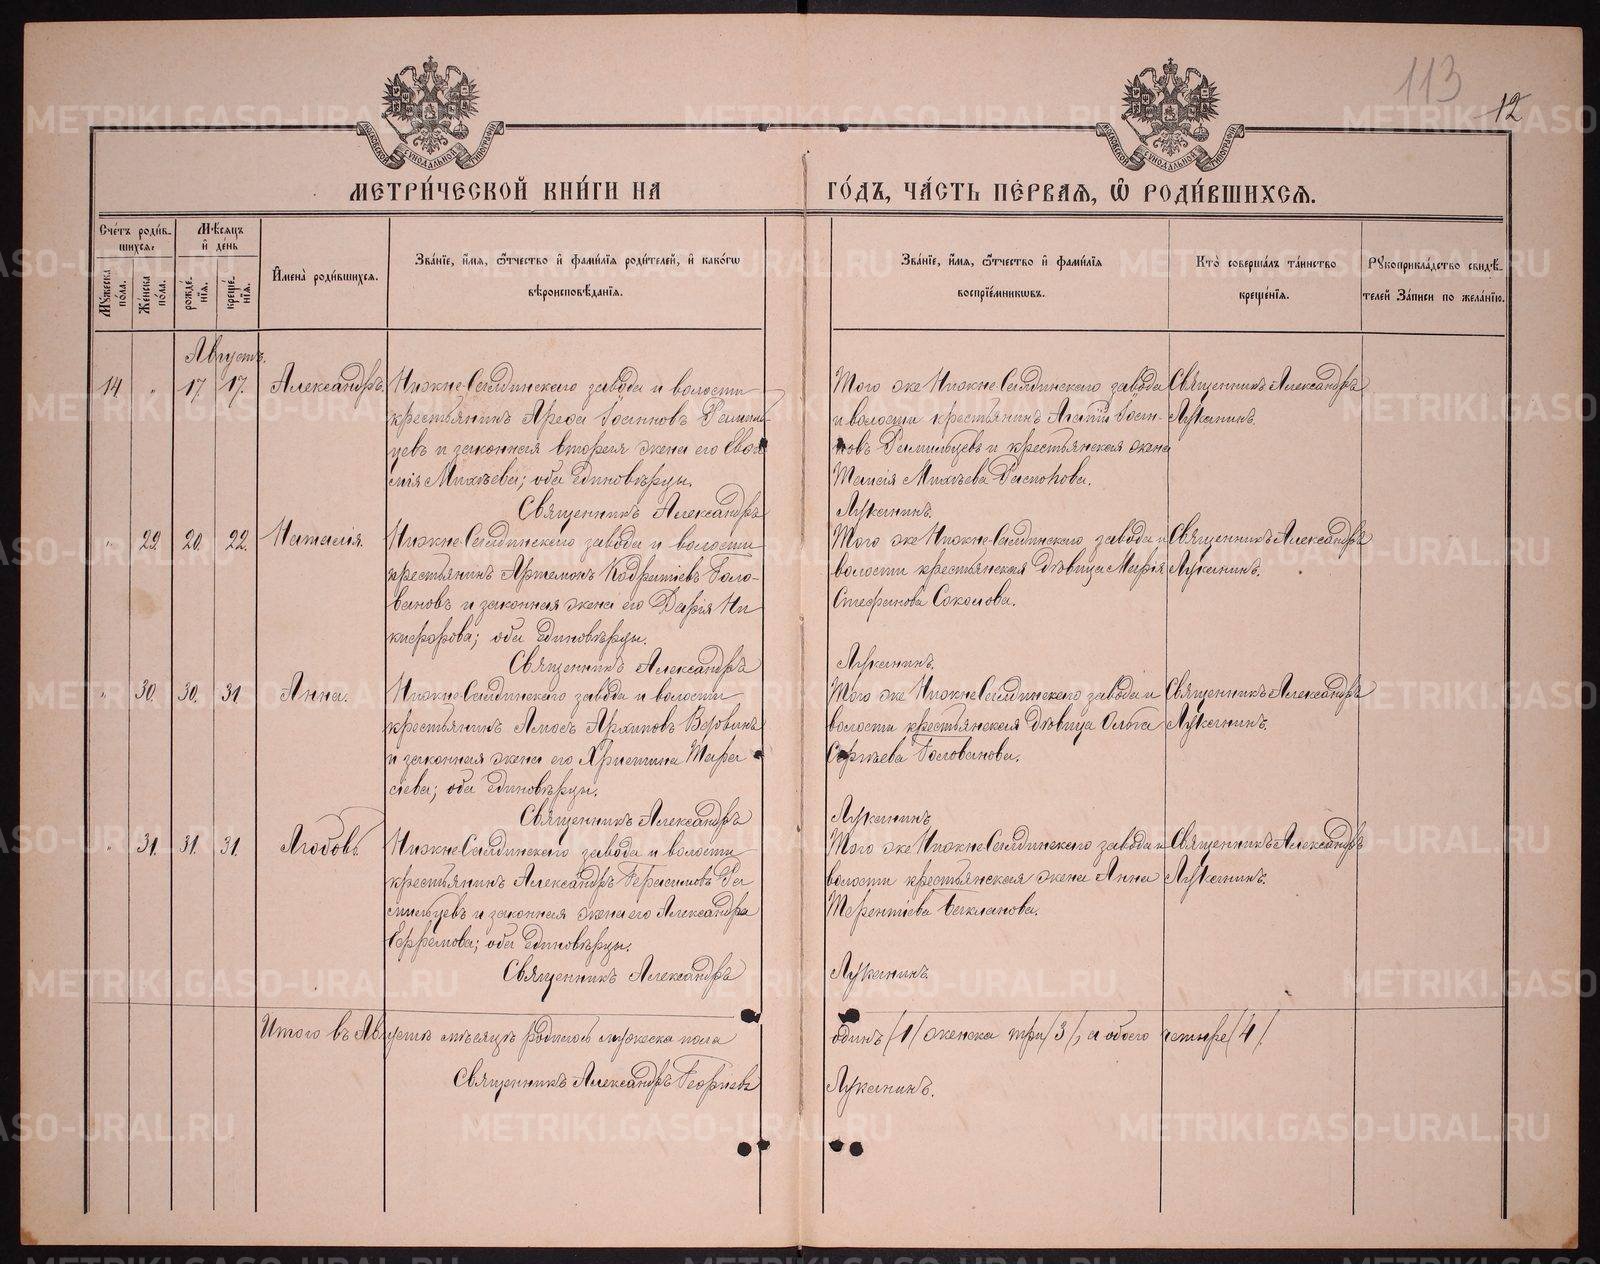 113
12
МОСКОВСКОЙ СѴНОДАЛЬНОЙ ТИПОГРАФІИ
МОСКОВСКОЙ СѴНОДАЛЬНОЙ ТИПОГРАФІИ
МЕТРИ́ЧЕСКОЙ КНИ́ГИ НА ГО́ДЪ, ЧА́СТЬ ПЕ́РВАѦ, Ѡ РОДИ́ВШИХСѦ.
Сче́тъ роди́вшихсѧ.
Мꙋ́жеска по́ла.
Же́нска по́ла.
Мѣ́сѧцъ и҆ де́нь
рожде́нїѧ.
креще́нїѧ.
И҆мена̀ роди́вшихсѧ.
Зва́нїе, и҆́мѧ, ѻ҆́тчество и҆ фами́лїѧ роди́телей, и҆ како́гѡ
вѣроисповѣ́данїѧ.
Зва́нїе, и҆́мѧ, ѻ҆́тчество и҆ фами́лїѧ
воспрїе́мникѡвъ.
Кто̀ соверша́лъ та́инство
креще́нїѧ.
Рꙋкоприкла́дство свидѣ́-
телей За́писи по жела́нїю.
Августъ.
14 " 17. 17. Александръ
Нижне-Салдинскаго завода и волости
крестьянинъ Арефа Іоанновъ Рамиль
цевъ и законная вторая жена его
Михѣева; оба единовѣрцы.
Священникъ Александръ
Того же Нижне-Салдинскаго завода
и волости крестьянинъ Іоан-
новъ Рамильцевъ и крестьянская жена
Таисія Михѣева
Лукянинъ.
Священникъ Александръ
Лукянинъ.
" 29. 20. 22. Наталія.
Нижне-Салдинскаго завода и волости
крестьянинъ Артемонъ Кодратіевъ Голо-
вановъ и законная жена его Дарія Ни
кифорова; оба единовѣрцы.
Священникъ Александръ
Того же Нижне-Салдинскаго завода и
волости крестьянская дѣвица Марія
Стефанова Соколова.
Лукянинъ.
Священникъ Александръ
Лукянинъ.
" 30. 30. 31. Анна.
Нижне-Салдинскаго завода и волости
крестьянинъ Амосъ Архиповъ
и законная жена его Христина Тара
сіева; оба единовѣрцы.
Священникъ Александръ
Того же Нижне-Салдинскаго завода и
волости крестьянская дѣвица Ольга
Сергѣева Голованова.
Лукянинъ
Священникъ Александръ
Лукянинъ.
" 31. 31. 31. Любовь.
Нижне-Салдинскаго завода и волости
крестьянинъ Александръ Герасимовъ Ра
мильцевъ и законная жена его Александра
Ефремова; оба единовѣрцы.
Священникъ Александръ
Того же Нижне-Салдинскаго завода и
волости крестьянская жена Анна
Терентіева Бакланова.
Лукянинъ.
Священникъ Александръ
Лукянинъ.
Итого въ Августѣ мѣсяцѣ родилось мужеска пола одинъ /1/ женска три /3/, а обоего четыре /4/.
Священникъ Александръ Георгіевъ Лукянинъ.
METRIKI.GASO-URAL.RU